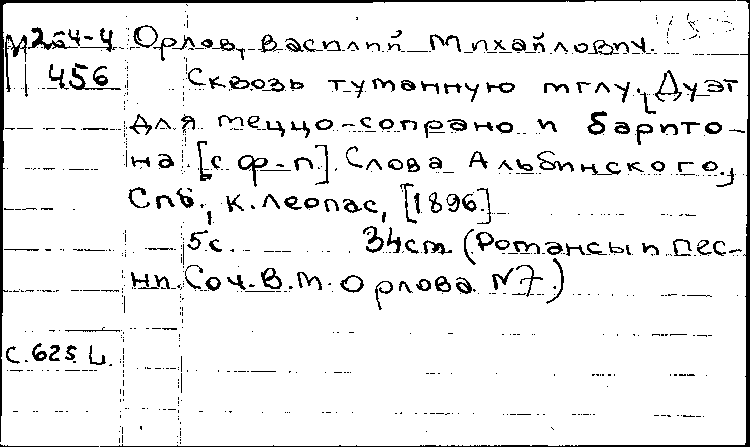 М 254-4
456
Орлов, Василий Михайлович.
Сквозь туманную мглу. [Дуэт
для меццо-сопрано и барито-
на. [с ф-п]. Слова Альбинского.]
Спб., К. Леопас, [1896.]
5 с. 34 cm. (Романсы и пес-
ни. Соч. В. М. Орлова. № 7.)
с. 625. L.